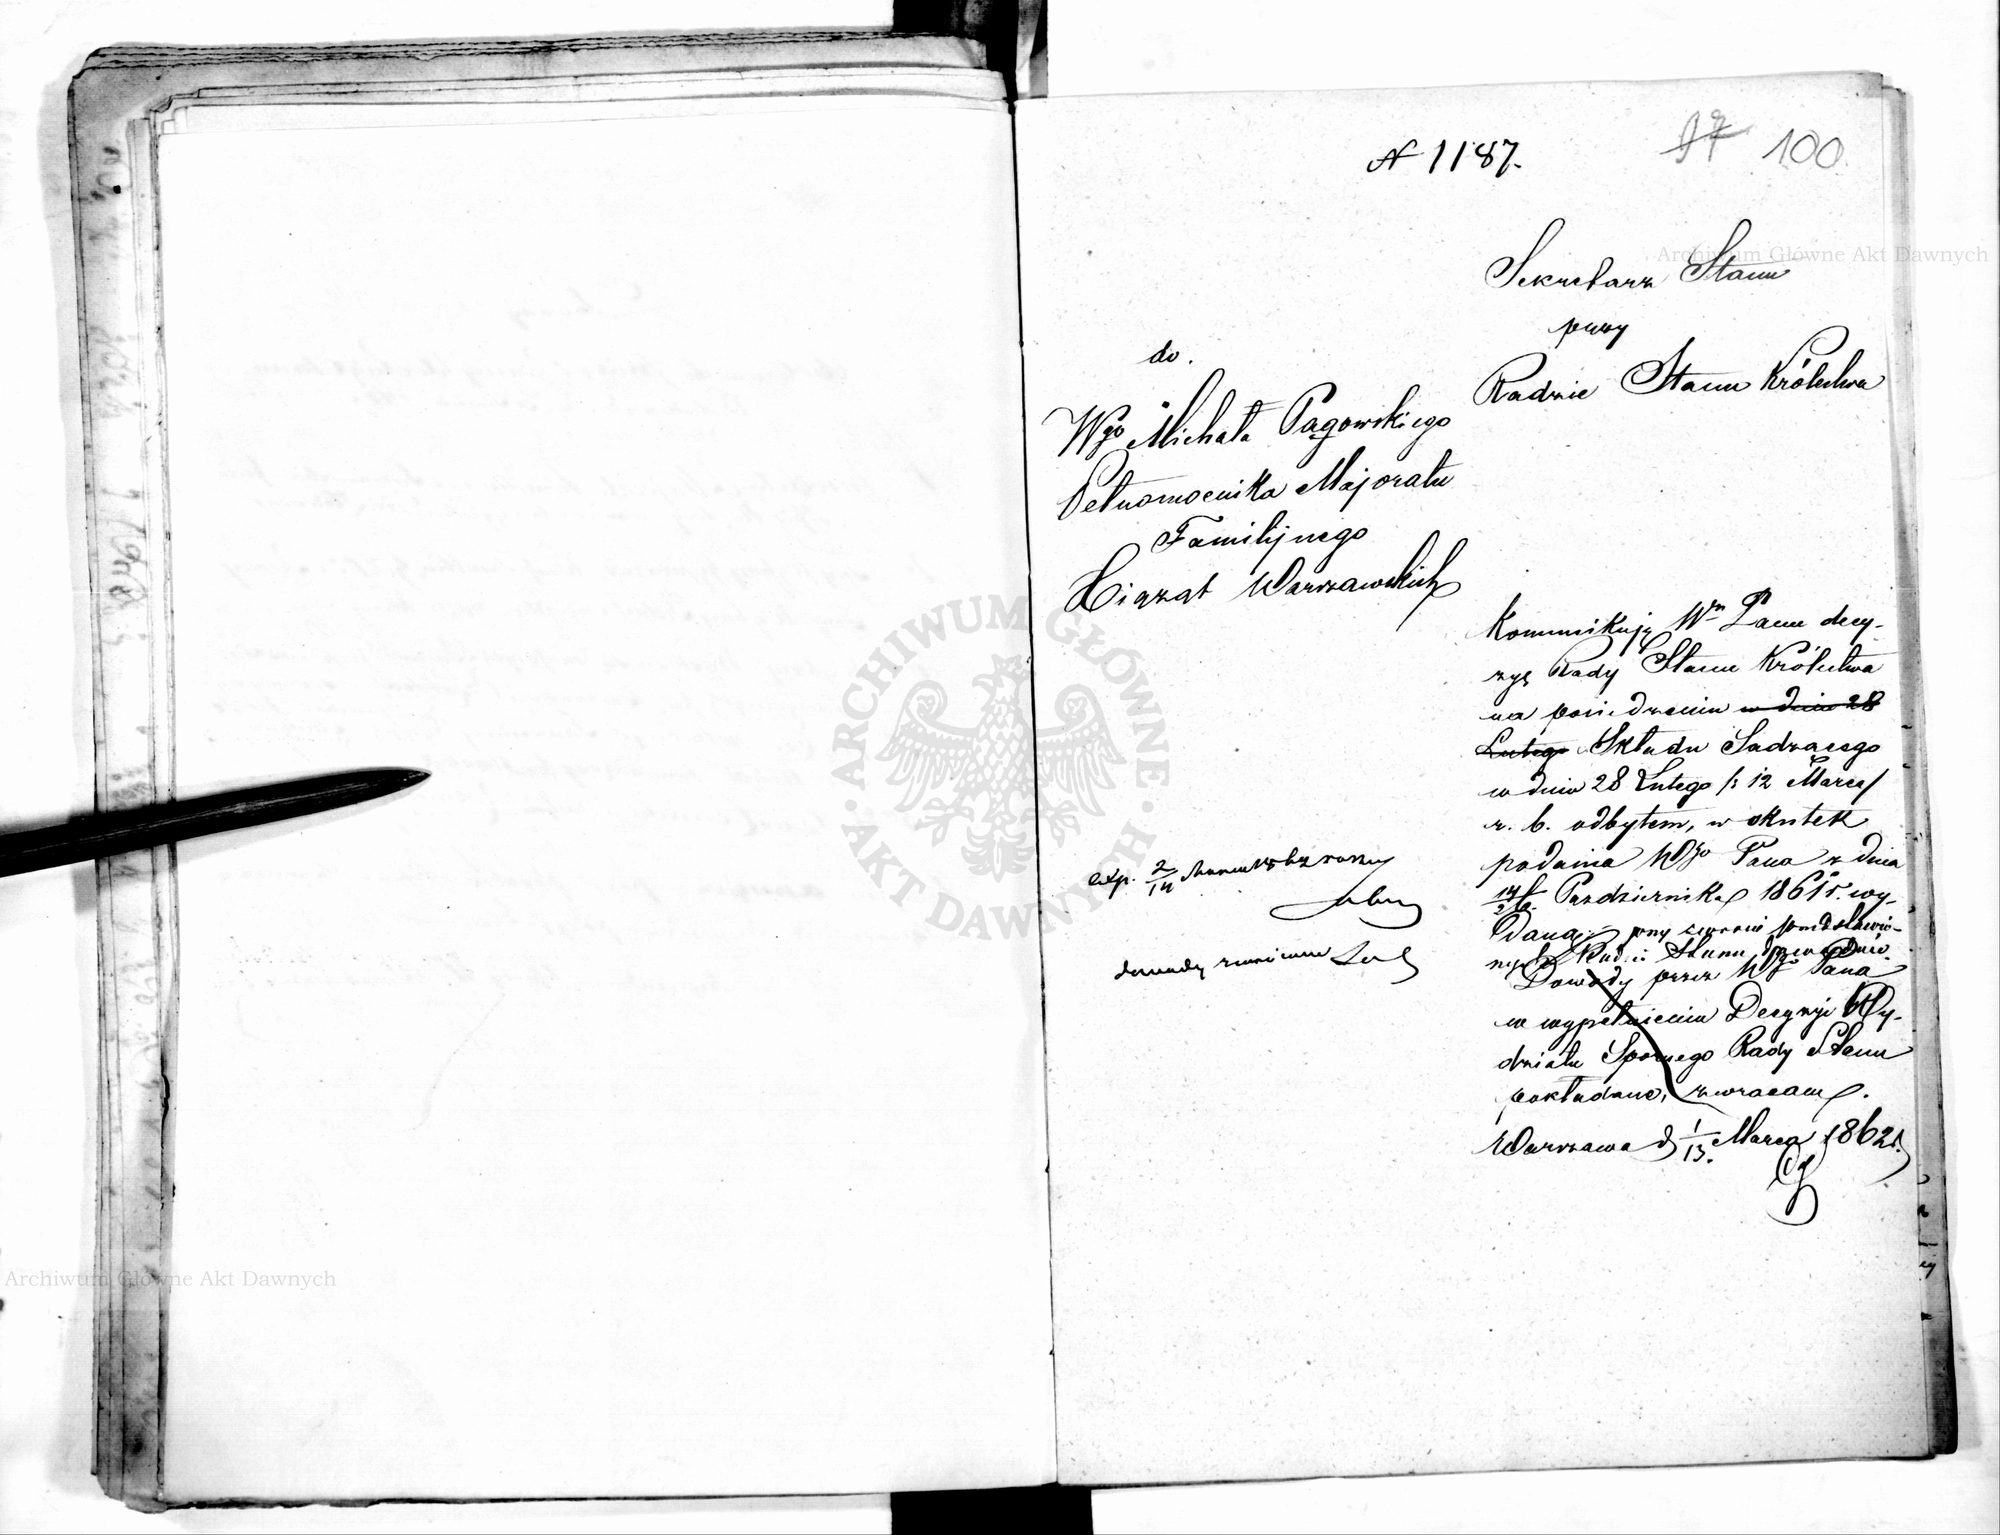 N 1187.
97 100
Sekretarz Stanu
przy
Radzie Stanu Królestwa
do.
Wgo Michała Pągowskiego
Pełnomocnika Majoratu
Familijnego
Xiążąt Warszawskich
Kommunikuję Wmu Panu decy-
zyę Rady Stanu Królestwa
na posiedzeniu w dniu 28
Lutego Składu Sądzącego
w dniu 28 Lutego /: 12 Marca/
r. b. odbytem, w skutek
podania WJgo Pana z dnia
Października 1861 r. wy-
daną, przy zwrocie
Radzie Stanu
Dowody przez WJgo Pana
w wypełnieniu Decyzyi Wy-
działu Spornego Rady Stanu
pokładane, zwracam.
Warszawa d 1/13. Marca 1862 r.
exp. 2/14
dowody
Archiwum Główne Akt Dawnych
Archiwum Główne Akt Dawnych
ARCHIWUM GŁÓWNE AKT DAWNYCH